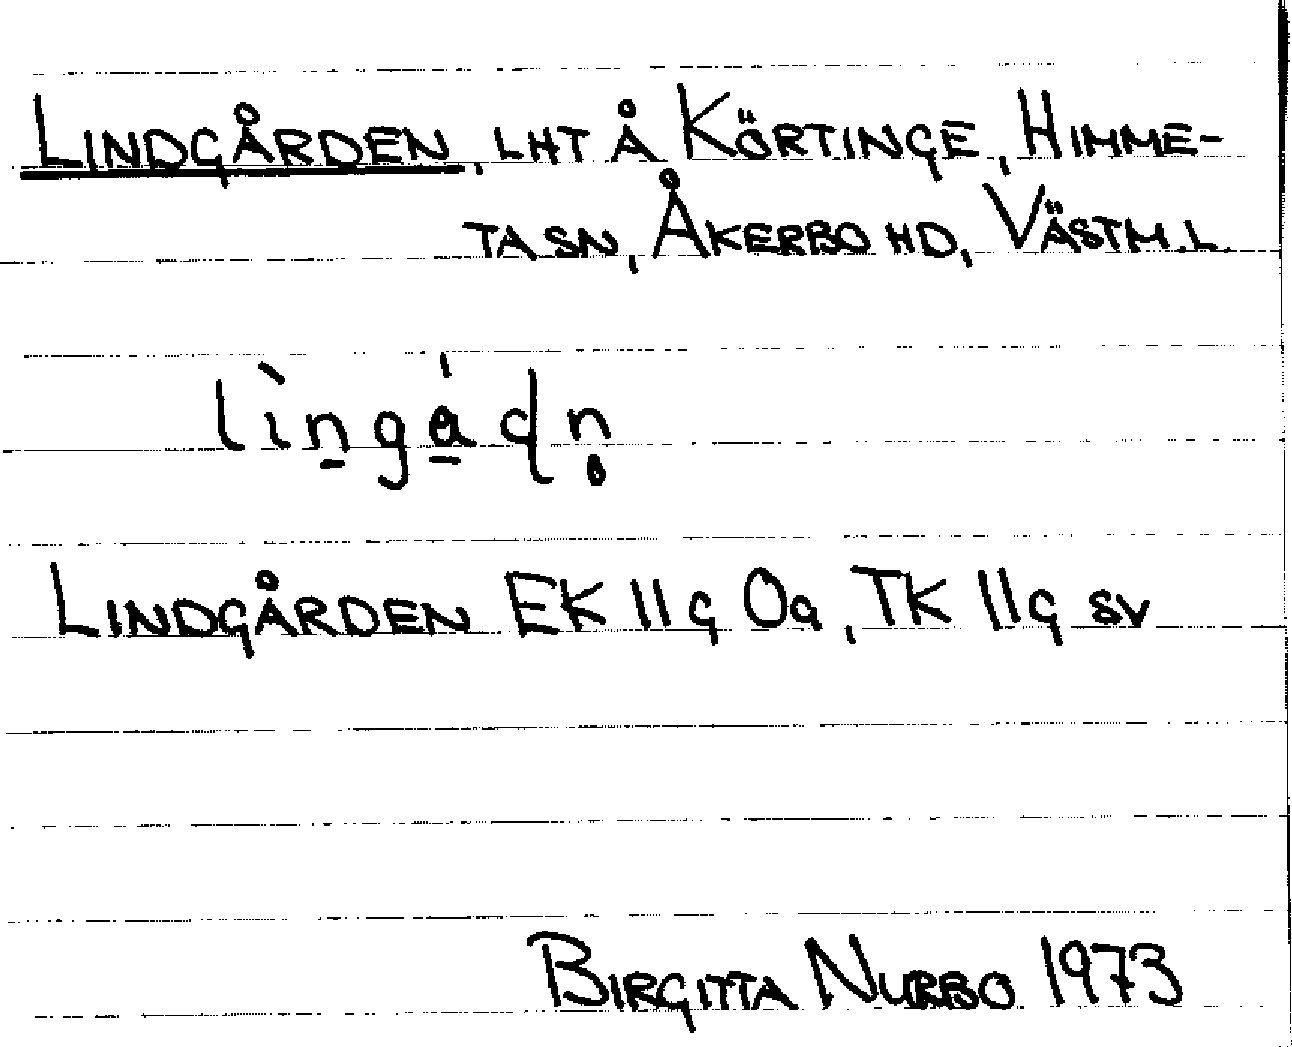 LINDGÅRDEN, LHT Å KÖRTINGE, HIMME-
TA SN, ÅKERBO HD, VÄSTM. L.
LINDGÅRDEN EK 11G 0a, TK 11G SV
BIRGITTA NURBO 1973